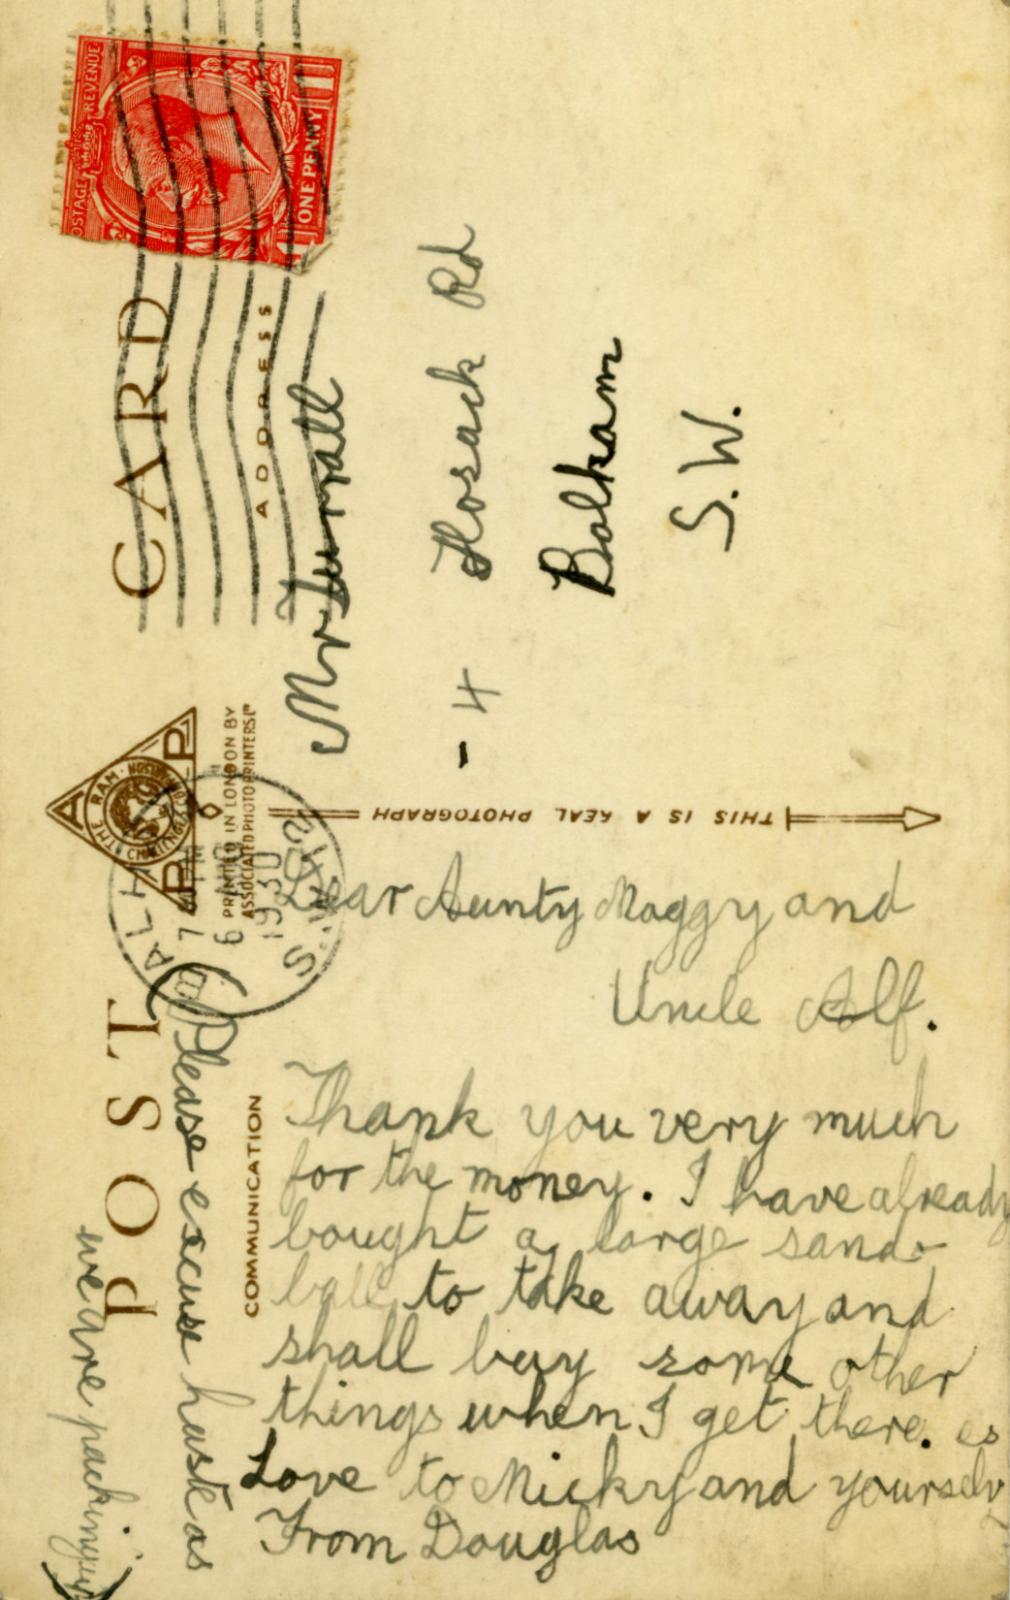 POST CARD
POSTAGE REVENUE
ONE PENNY
A
THE RAM. NOSWORTHY
P P
PRINTED IN LONDON BY
ASSOCIATED PHOTOPRINTERS LD
COMMUNICATION
ADDRESS
BALHAM
7
6
1930
S.W.12
THIS IS A REAL PHOTOGRAPH
Mr Turrall
- 4 Hosack Rd
Balham
S.W.
Dear Aunty Maggy and
Uncle Alf.
Thank you very much
for the money. I have already
bought a large sand-
ball to take away and
shall buy some other
things when I get there.
Love to Micky and yourselves
From Douglas
(Please excuse haste as
we are packing up)